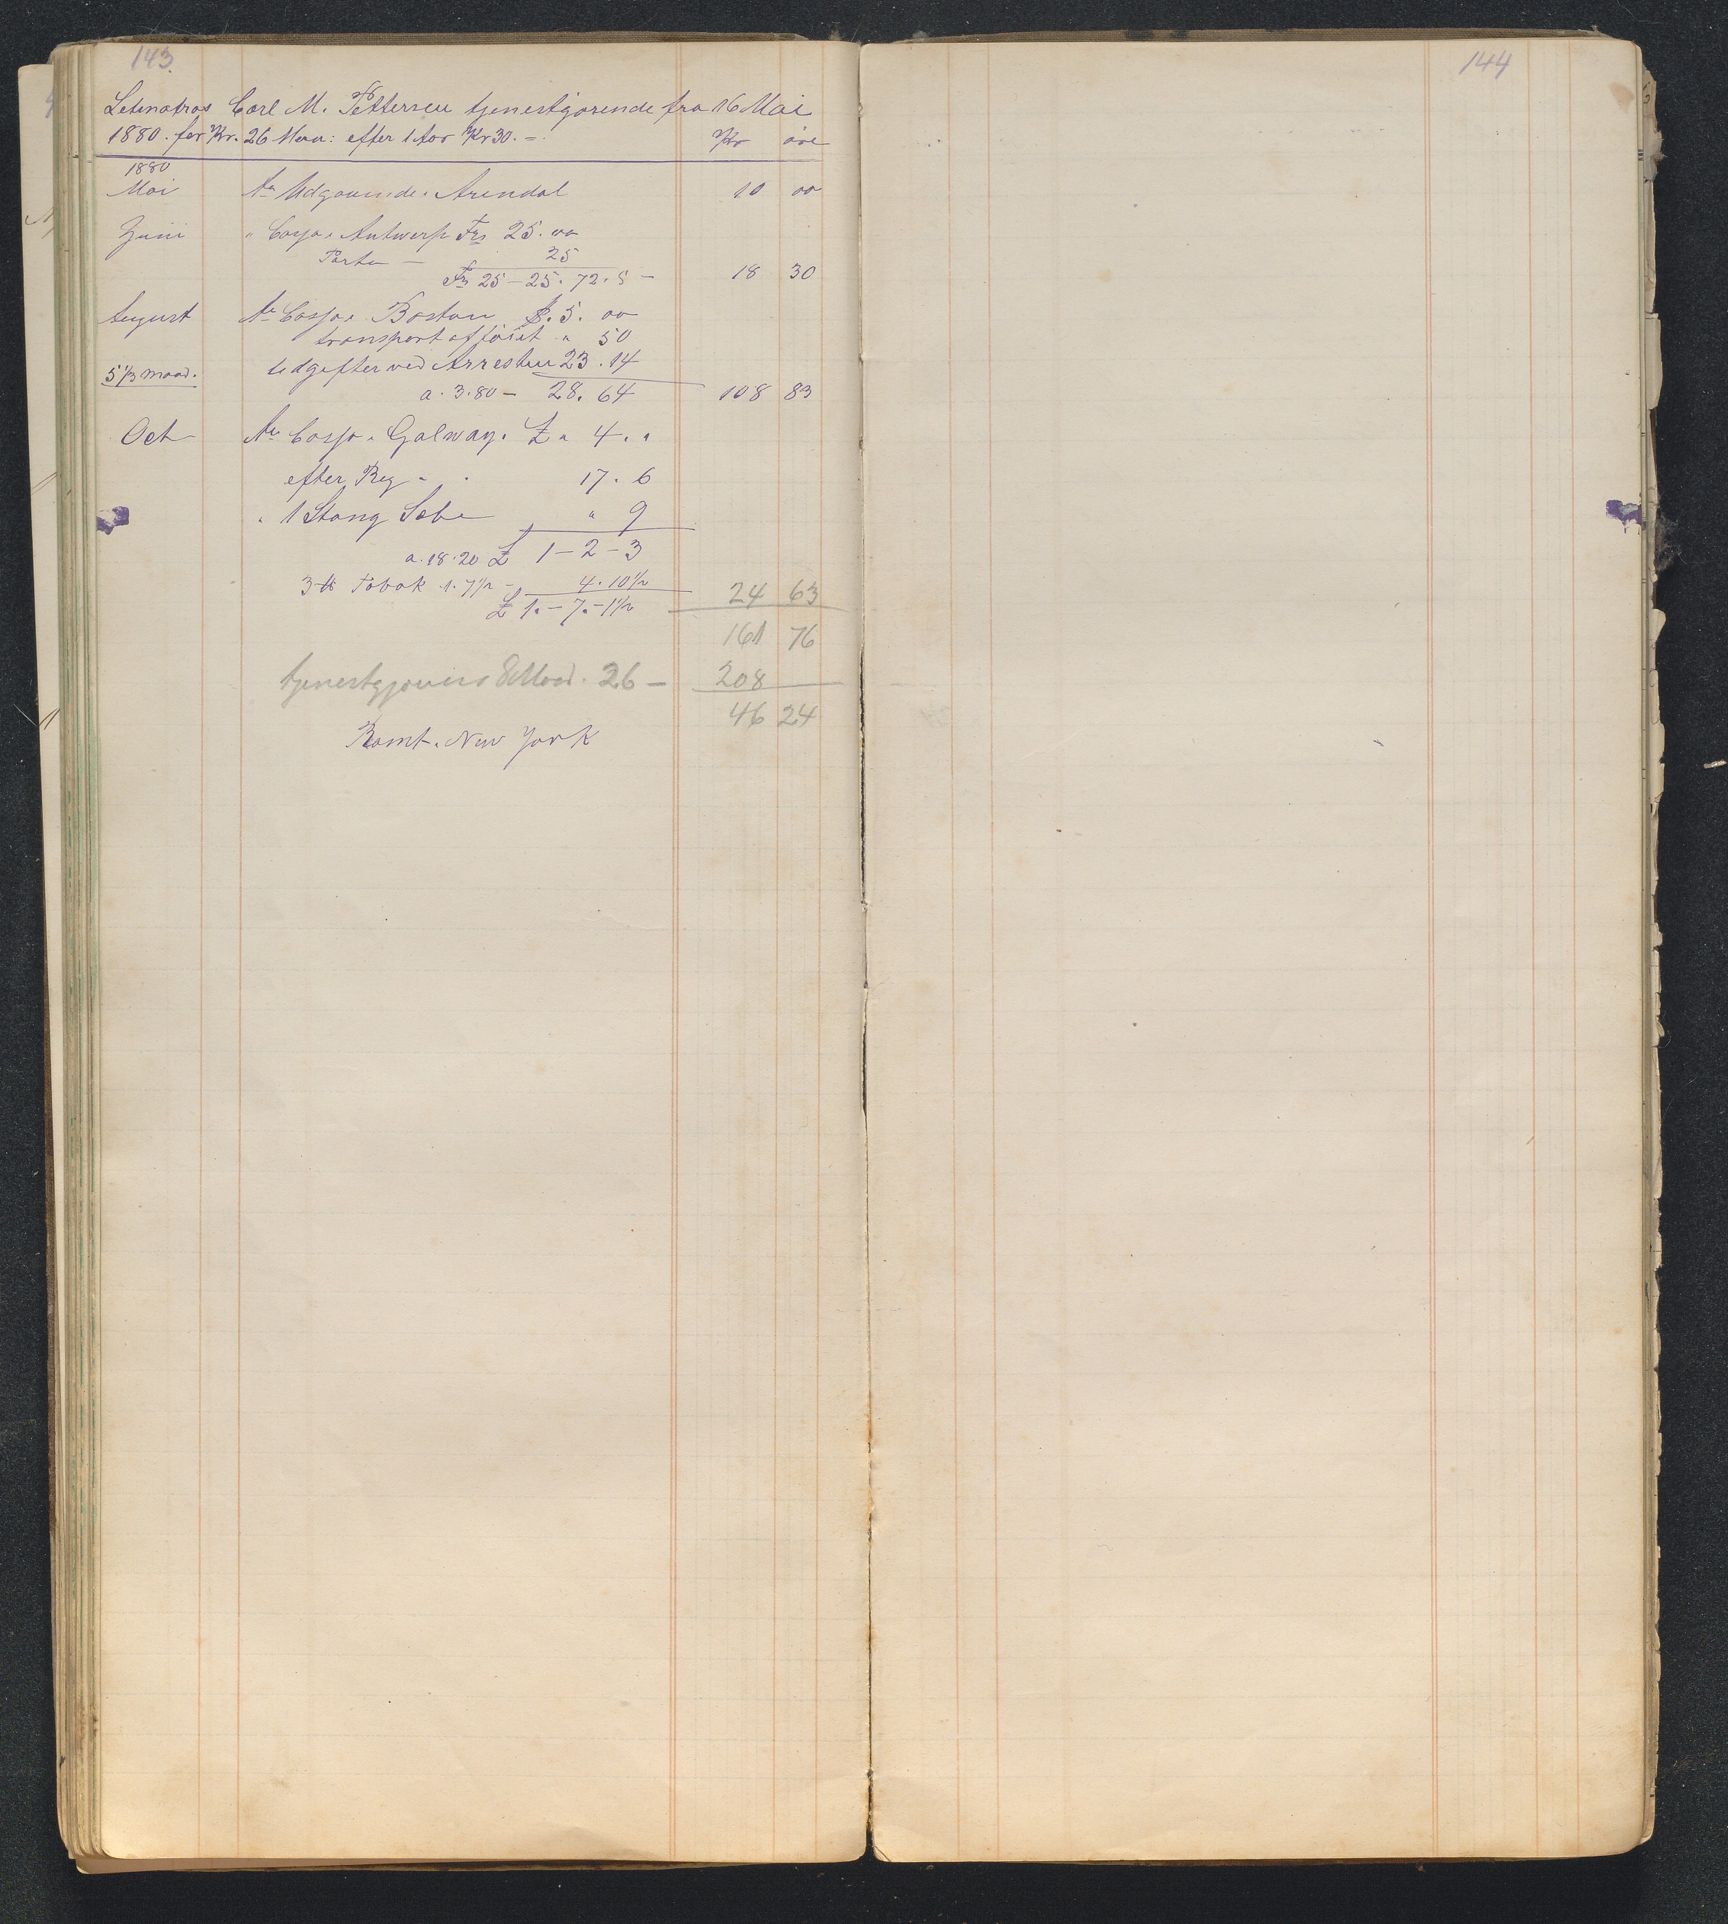 143
Letmatros Carl M. Pettersen tjenestgjorende fra 16 Mai
1880. for Kr. 26 Men: efter 1 Aar Kr 30. -. Kr øre
1880
Mai Pr Udgaaende. Arendal 10 00
Juni " Cassa. Antwerp Frs 25. 00
Porto - 25
Frs 25 - 25. 72.5 - 18 30
August Pr Cassa. Boston $. 5. 00
transport af töiet " 50
5 1/3 maad. Udgifter ved Arresten 23. 14
a. 3.80 - 28. 64 108 83
Oct Pr Cassa. Galway. £ " 4. "
efter Reg " . 17. 6
" 1 Stang Sæbe " 9
a. 18.20 £ 1 - 2 - 3
3 ℔ Tobak 1. 7 1/2 - 4. 10 1/2 24 63
£ 1. - 7. - 1 1/2
161 76
tjenestgjøres 8 Maad. 26 - 208
46 24
Rømt. New York
144